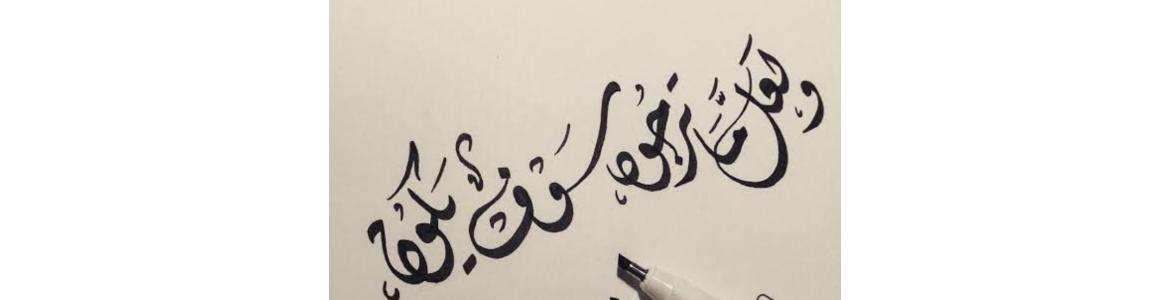 ولعل ما ترجوه سوف يكون